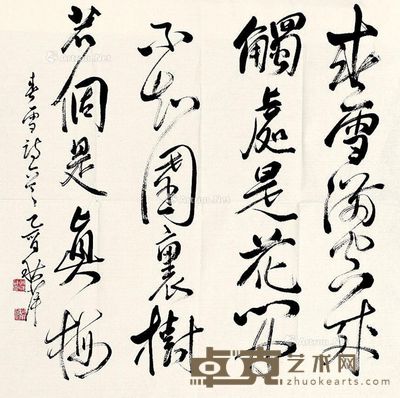 春雪滿空來
觸處是花開
不知園裏樹
若個是眞梅
春雪詩 乙酉
卓克艺术网
zhuokearts.com